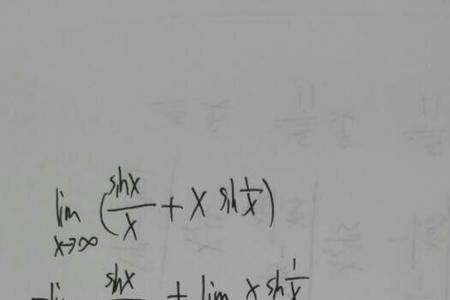 lim x→∞ (sinx/x + x sin 1/x)
lim sinx + lim x sin 1/x